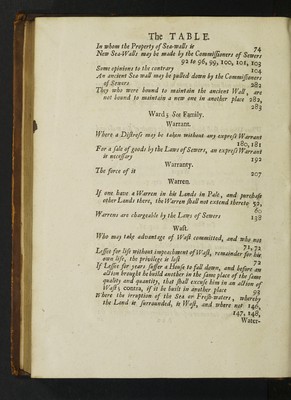 The TABLE.
In whom the Property of Sea-walls is 74
New Sea-Walls may be made by the Commissioners of Sewers
92 to 96, 99, 100, 101, 103
Some opinions to the contrary 104
An ancient Sea wall may be pulled down by the Commissioners
of Sewers 282
They who were bound to maintain the ancient Wall, are
not bound to maintain a new one in another place 282,
283
Ward; See Family.
Warrant.
Where a Distress may be taken without any express Warrant
180, 181
For a sale of goods by the Laws of Sewers, an express Warrant
is necessary 192
Warranty.
The force of it 207
Warren.
If one have a Warren in his Lands in Pale, and purchase
other Lands there, the Warren shall not extend thereto 52,
60
Warrens are chargeable by the Laws of Sewers 138
Wast.
Who may take advantage of Wast committed, and who not
71, 72
Lessee for life without impeachment of Wast, remainder for his
own life, the privilege is lost 72
If Lessee for years suffer a House to fall down, and before an
action brought he build another in the same place of the same
quality and quantity, that shall excuse him in an action of
Wast; contra, if it be built in another place 93
Where the irruption of the Sea or Fresh-waters, whereby
the Land is surrounded, is Wast, and where not 146,
147, 148,
Water-